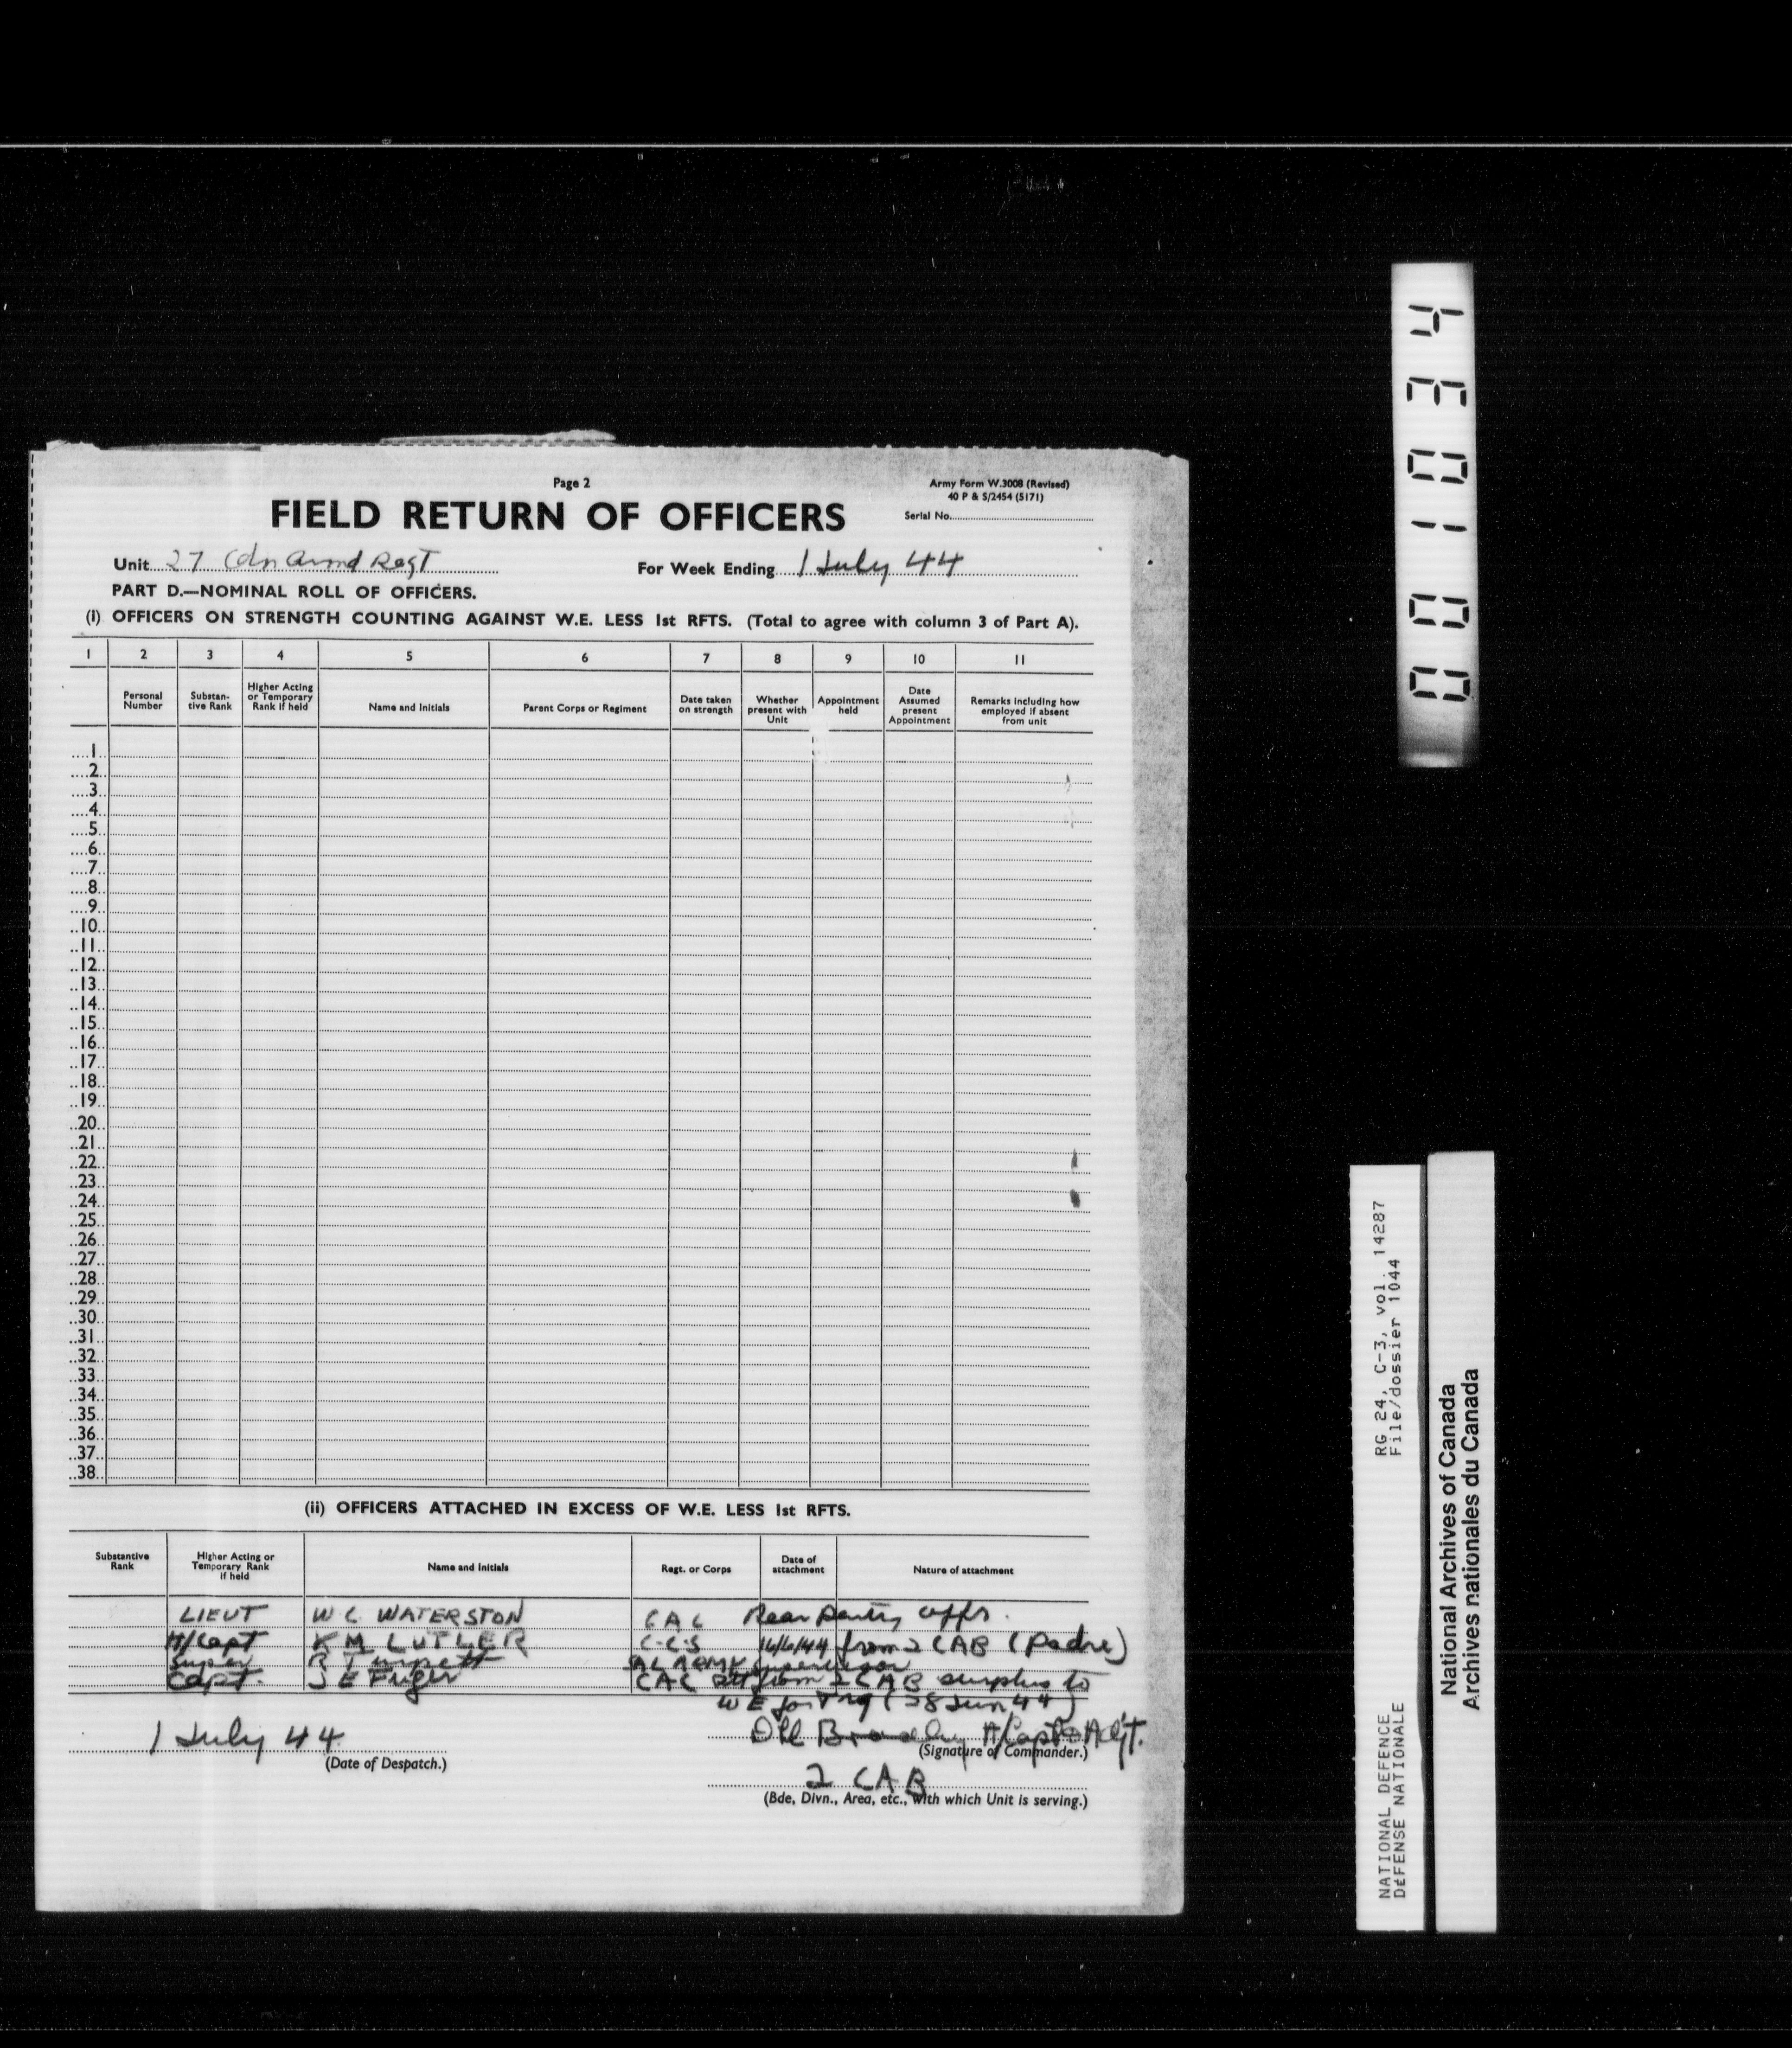 Page 2
Army Form W.3008 (Revised)
40 P & S/2454 (5171)
FIELD RETURN OF OFFICERS
Serial No.
Unit 27 Cdn Armd Regt
For Week Ending 1 July 44
PART D.—NOMINAL ROLL OF OFFICERS.
(i) OFFICERS ON STRENGTH COUNTING AGAINST W.E. LESS 1st RFTS. (Total to agree with column 3 of Part A).
1 2 3 4 5 6 7 8 9 10 11
Personal Number
Substan-tive Rank
Higher Acting or Temporary Rank if held
Name and Initials
Parent Corps or Regiment
Date taken on strength
Whether present with Unit
Appointment held
Date Assumed present Appointment
Remarks including how employed if absent from unit
1
2
3
4
5
6
7
8
9
10
11
12
13
14
15
16
17
18
19
20
21
22
23
24
25
26
27
28
29
30
31
32
33
34
35
36
37
38
(ii) OFFICERS ATTACHED IN EXCESS OF W.E. LESS 1st RFTS.
Substantive Rank
Higher Acting or Temporary Rank if held
Name and Initials
Regt. or Corps
Date of attachment
Nature of attachment
LIEUT W C WATERSTON CAC Rear Party offr.
H/Capt K M CUTLER C.C.S 16/6/44 from 2 CAB (Padre)
Super R T Supervisor
Capt. J E CAC att from 2 CAB surplus to
W E for trg (28 Jun 44)
1 July 44
(Date of Despatch.)
A/Capt & Adjt.
(Signature of Commander.)
2 CAB
(Bde, Divn., Area, etc., with which Unit is serving.)
000103 4
RG 24, C-3, vol. 14287
File/dossier 1044
NATIONAL DEFENCE
DÉFENSE NATIONALE
National Archives of Canada
Archives nationales du Canada